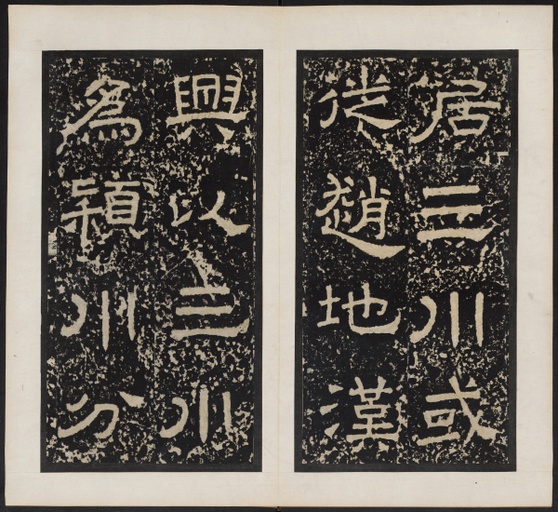 居三川或
徙趙地漢
興以三川
為潁川分